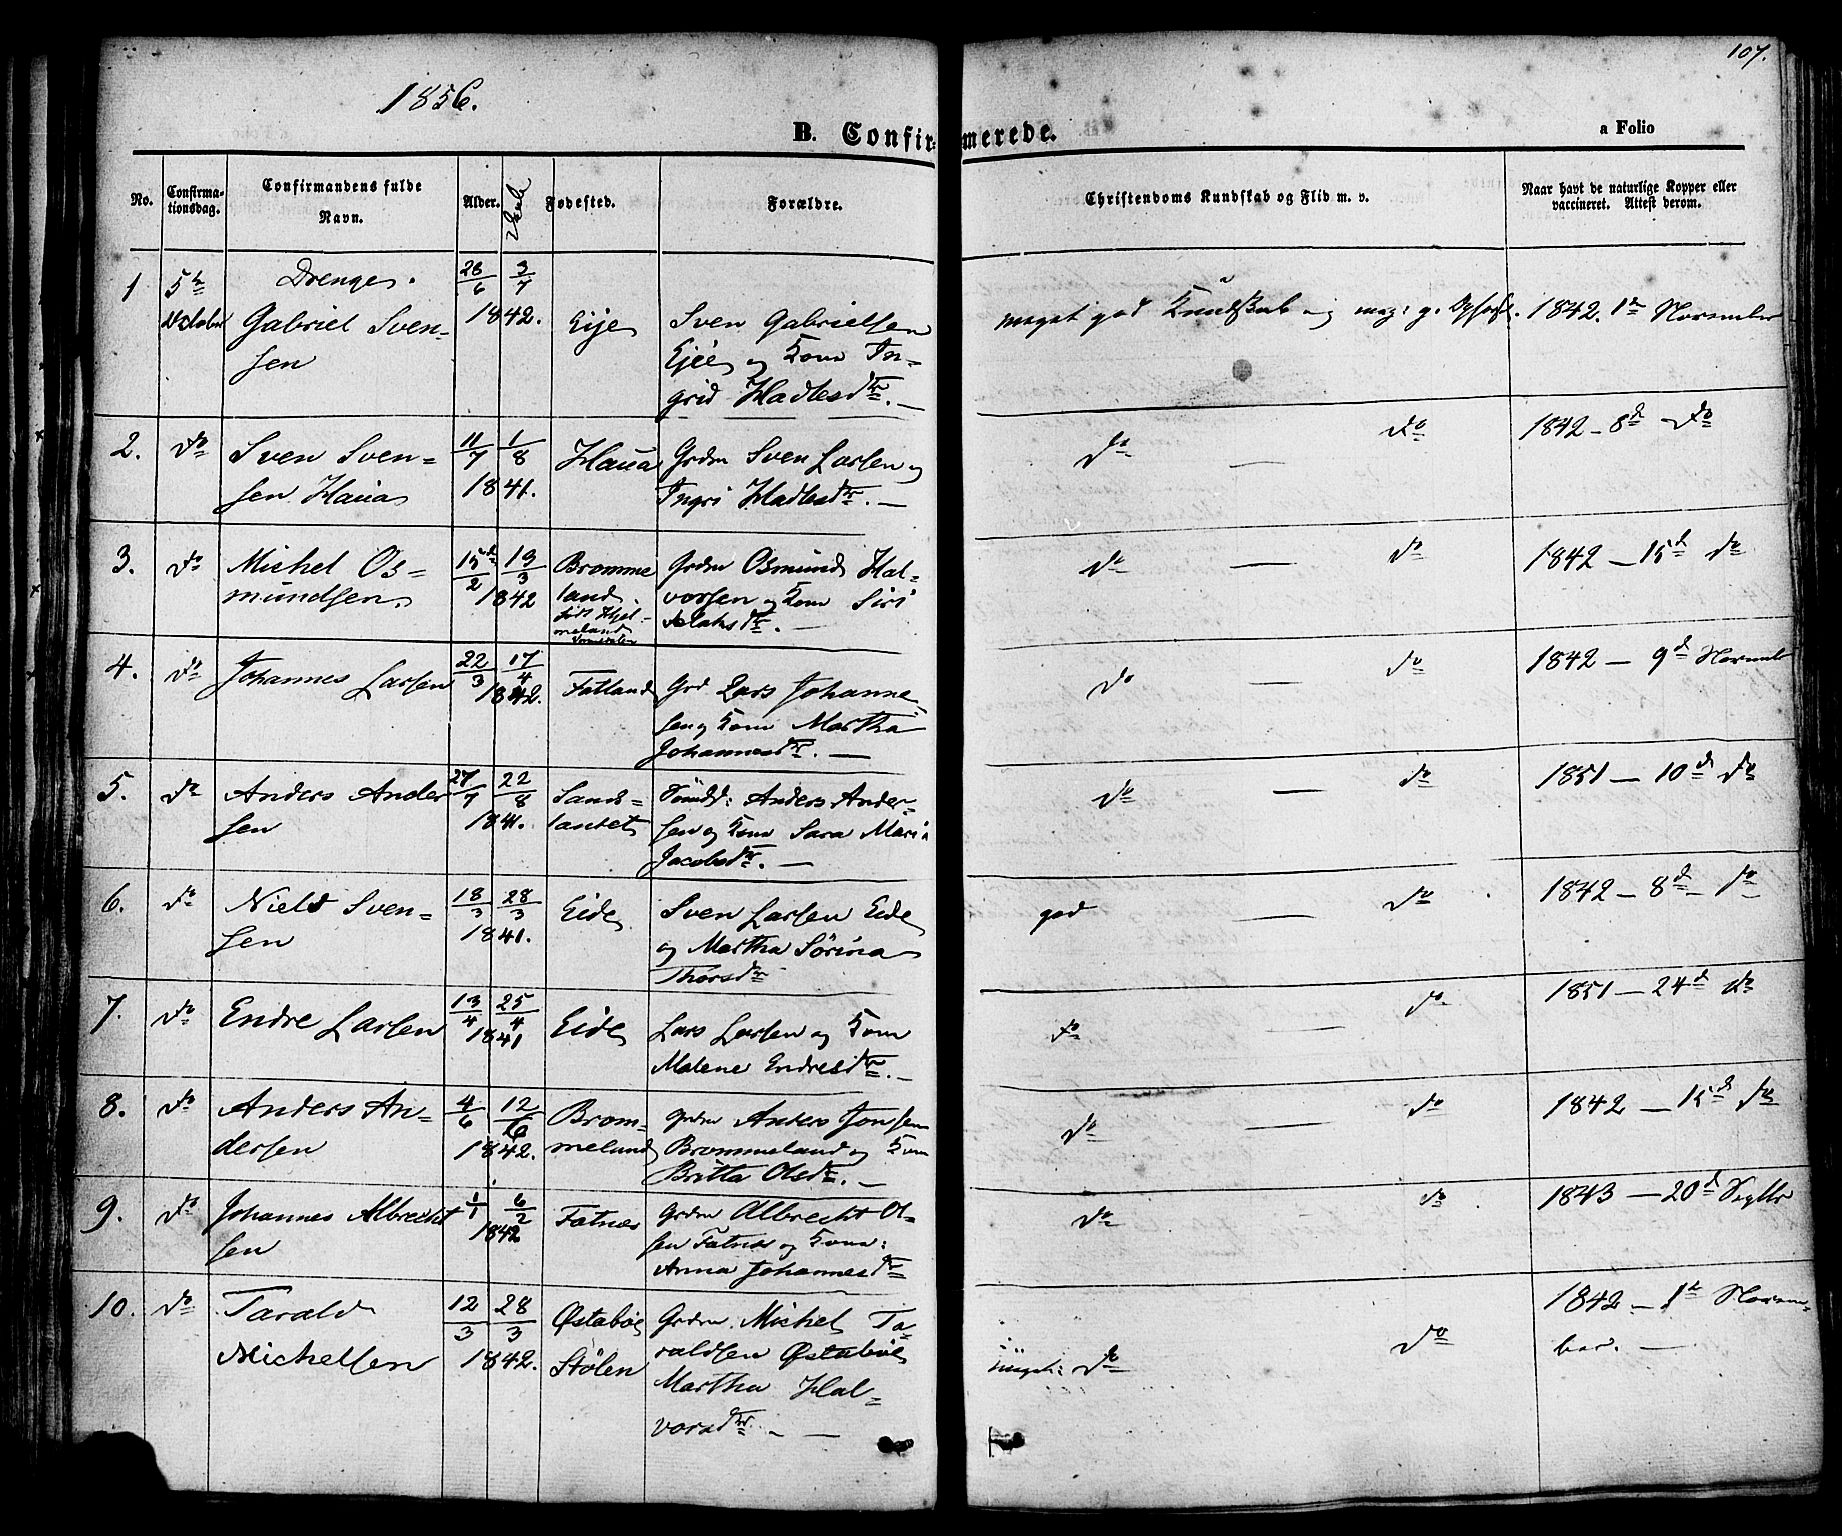 107.
1856.
B. Confirmerede.
a Folio
No.
Confirmationsdag.
Confirmandens fulde Navn.
Alder.
Fødested.
Forældre.
Christendoms Kundskab og Flid m. v.
Naar havt de naturlige Kopper eller vaccineret. Attest derom.
Drenge.
1 5te October Gabriel Svensen 26/6 3/7 1842. Eije Sven Gabrielsen Eije og Kone Ingrid Hadlesdtr. — meget god Kundskab og meg: g. 1842. 1te November
2. do Sven Svensen Haua 11/7 1/8 1841. Haua Grdm Sven Larsen og Ingri Hadlesdtr. — do — do 1842 - 8d - do
3. do Michel Osmundsen. 15de/2 19/3 1842 Brommeland. født Hjelmeland Grdm Osmund Halvorsen og Kone Siri Aslaksdtr. — do — do 1842 — 15d do
4. do Johannes Larsen 22/3 17/4 1842. Fatland Grd Lars Johannesen og Kone Martha Johannesdtr. — do — do 1842 — 9d Novemb
5. do Anders Andersen 27/7 22/8 1841. Sandslandet Anders Andersen og Kone Sara Maria Jacobsdtr. — do — do 1851 — 10d do
6. do Niels Svensen 18/3 28/3 1841. Eide Sven Larsen Eide og Martha Sørina Thorsdtr god — do 1842 — 8d — do
7. do Endre Larsen 13/4 25/4 1841 Eide Lars Larsen og Kone Malene Endresdtr. — do — do 1851 — 24d do
8. do Anders Andersen 4/6 12/6 1842. Brommeland Grdm Anders Jonsen Brommeland og Kone Britta Olsdtr. — do — do 1842 — 15d do
9. do Johannes Albrechtsen 1/1 6/2 1842 Fatnes Grdm Albrecht Olsen Fatnes og Kone: Anna Johannesdtr do — do 1843 — 20d Septbr
10. do Tarald Michelsen 12/3 28/3 1842. Østabø Stølen Grdm. Michel Taraldsen Østabø Martha Halvorsdtr. — do do 1842 — 1te November. —